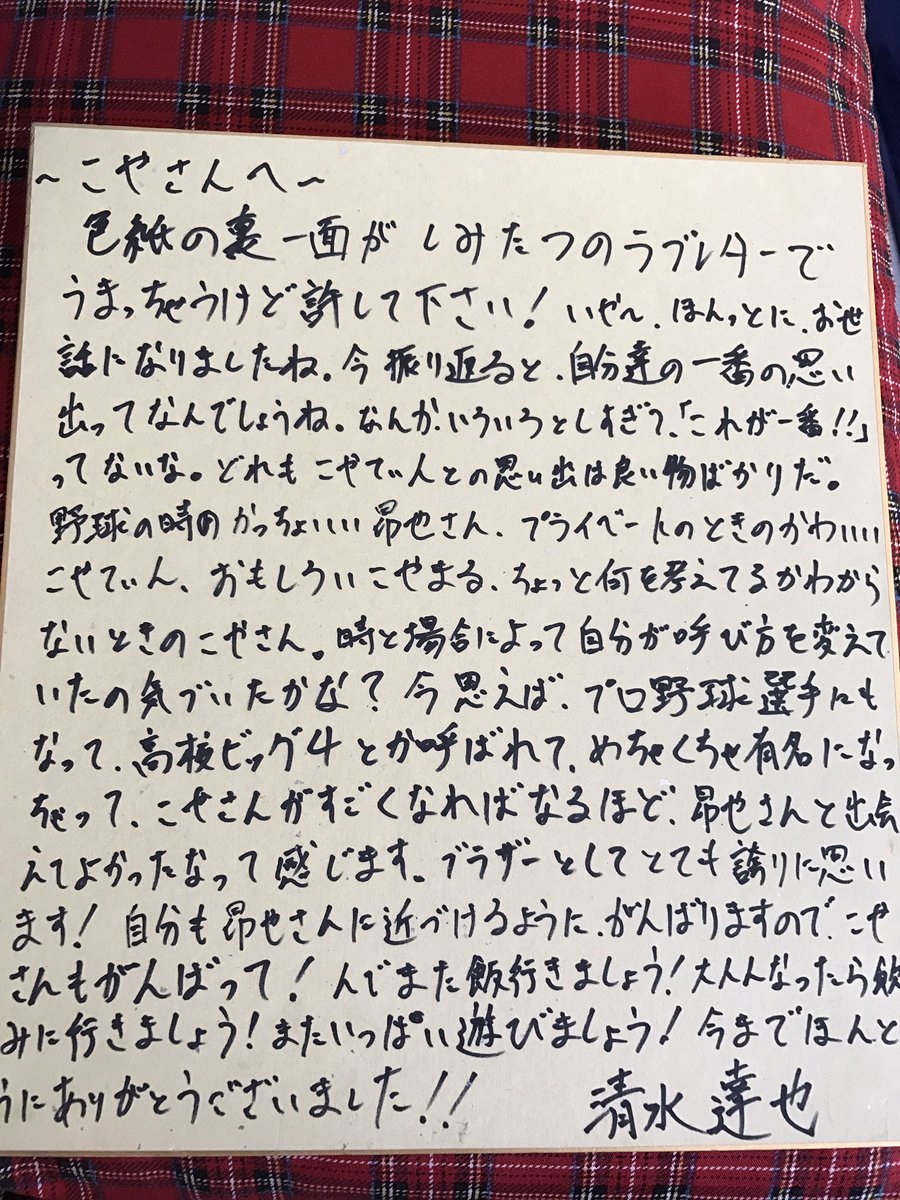 ～こやさんへ～
色紙の裏一面がしみたつのラブレターで
うまっちゃうけど許して下さい！いや～、ほんっとに、お世
話になりましたね。今振り返ると、自分達の一番の思い
出ってなんでしょうね。なんか、いろいろとしすぎて、「これが一番！！」
ってないな。どれもこやてぃんとの思い出は良い物ばかりだ。
野球の時のかっちょいいい昂也さん、プライベートのときのかわいい
こやてぃん、おもしろいこやまる、ちょっと何を考えてるかわから
ないときのこやさん。時と場合によって自分が呼び方を変えて
いたの気づいたかな？今思えば、プロ野球選手にも
なって、高校ビッグ4とか呼ばれて、めちゃくちゃ有名になっ
ちゃって、こやさんがすごくなればなるほど、昂也さんと出会
えてよかったなって感じます。ブラザーとしてとても誇りに思い
ます！自分も昂也さんに近づけるように、がんばりますので、こや
さんもがんばって！んでまた飯行きましょう！大人んなったら飲
みに行きましょう！またいっぱい遊びましょう！今までほんと
うにありがとうございました！！　清水達也